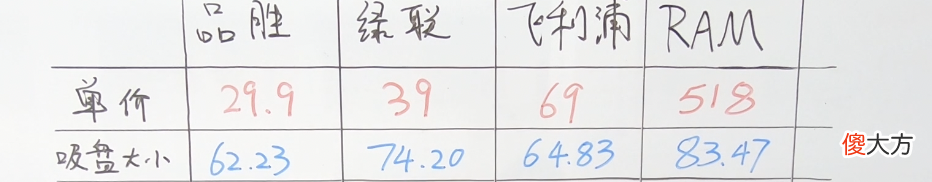 品胜 绿联 飞利浦 RAM
单价 29.9 39 69 518
吸盘大小 62.23 74.20 64.83 83.47
傻大方